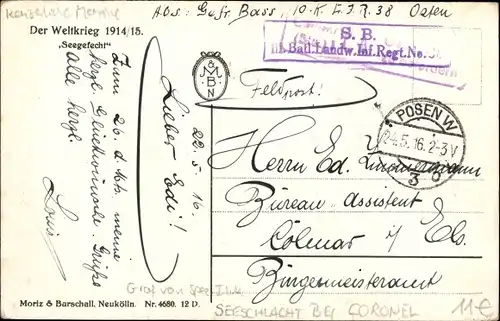 Kaiserliche Marine
Abs: Gefr. Bass, 10. K. L.I.R. 38 Osten
Der Weltkrieg 1914/15.
„Seegefecht“
S. B.
III. Batl. Landw. Inf. Regt. No. 38
Feldpost!
POSEN W
24.5.16. 2-3 V
3 o
M B
N
22. 5. 16.
Lieber Edi!
Zum 26. d. Mts. meine
herzl. Glückwünsche. Grüße
alle herzl.
Louis
Herrn Ed.
Büreau-Assistent
Colmar i/ Els.
Bürgermeisteramt
Graf von Spee
SEESCHLACHT BEI CORONEL
11€
Moriz & Barschall, Neukölln. Nr. 4680. 12 D.